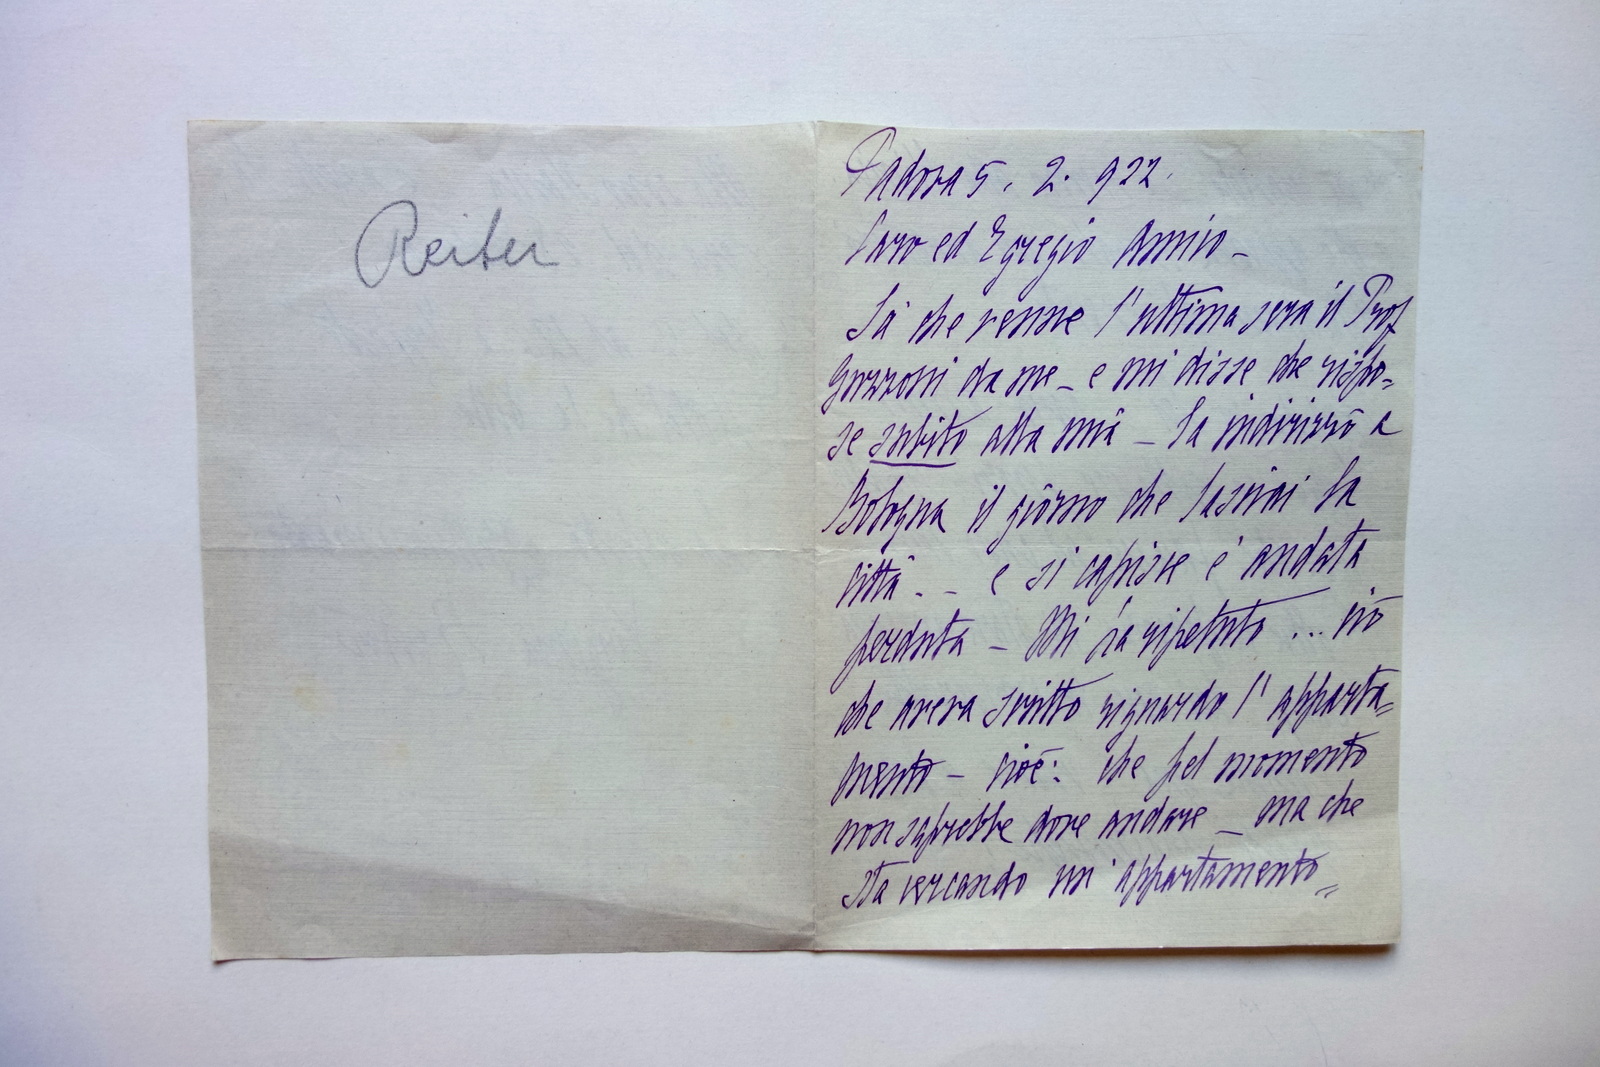 Reiter
Padova 5. 2. 922.
Caro ed Egregio Amico –
Sa che venne l'ultima sera il Prof
Guzzoni da me – e mi disse che rispo=
se subito alla mia – La indirizzò a
Bologna il giorno che lasciai la
Città . – e si capisce è andata
perduta – Mi ha ripetuto ... ciò
che aveva scritto riguardo l'apparta=
mento – cioè: che pel momento
non saprebbe dove andare – ma che
sta cercando un'appartamento =